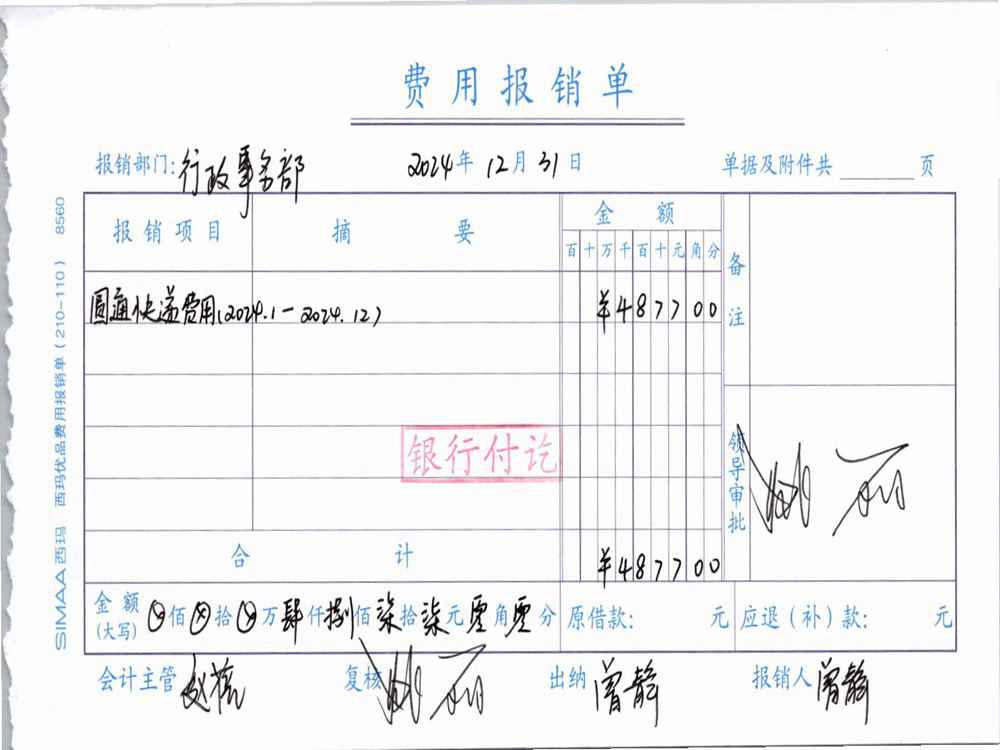 费用报销单
报销部门:行政事务部 2024年12月31日 单据及附件共 页
报销项目 摘要 金额 备注
百十万千百十元角分
圆通快递费用(2024.1-2024.12) ¥487700
银行付讫
领导审批
合计 ¥487700
金额(大写) ⊗佰⊗拾⊗万肆仟捌佰柒拾柒元零角零分 原借款: 元 应退(补)款: 元
会计主管 复核 出纳 曾静 报销人 曾静
SIMAA西玛 西玛优品费用报销单(210-110) 8560